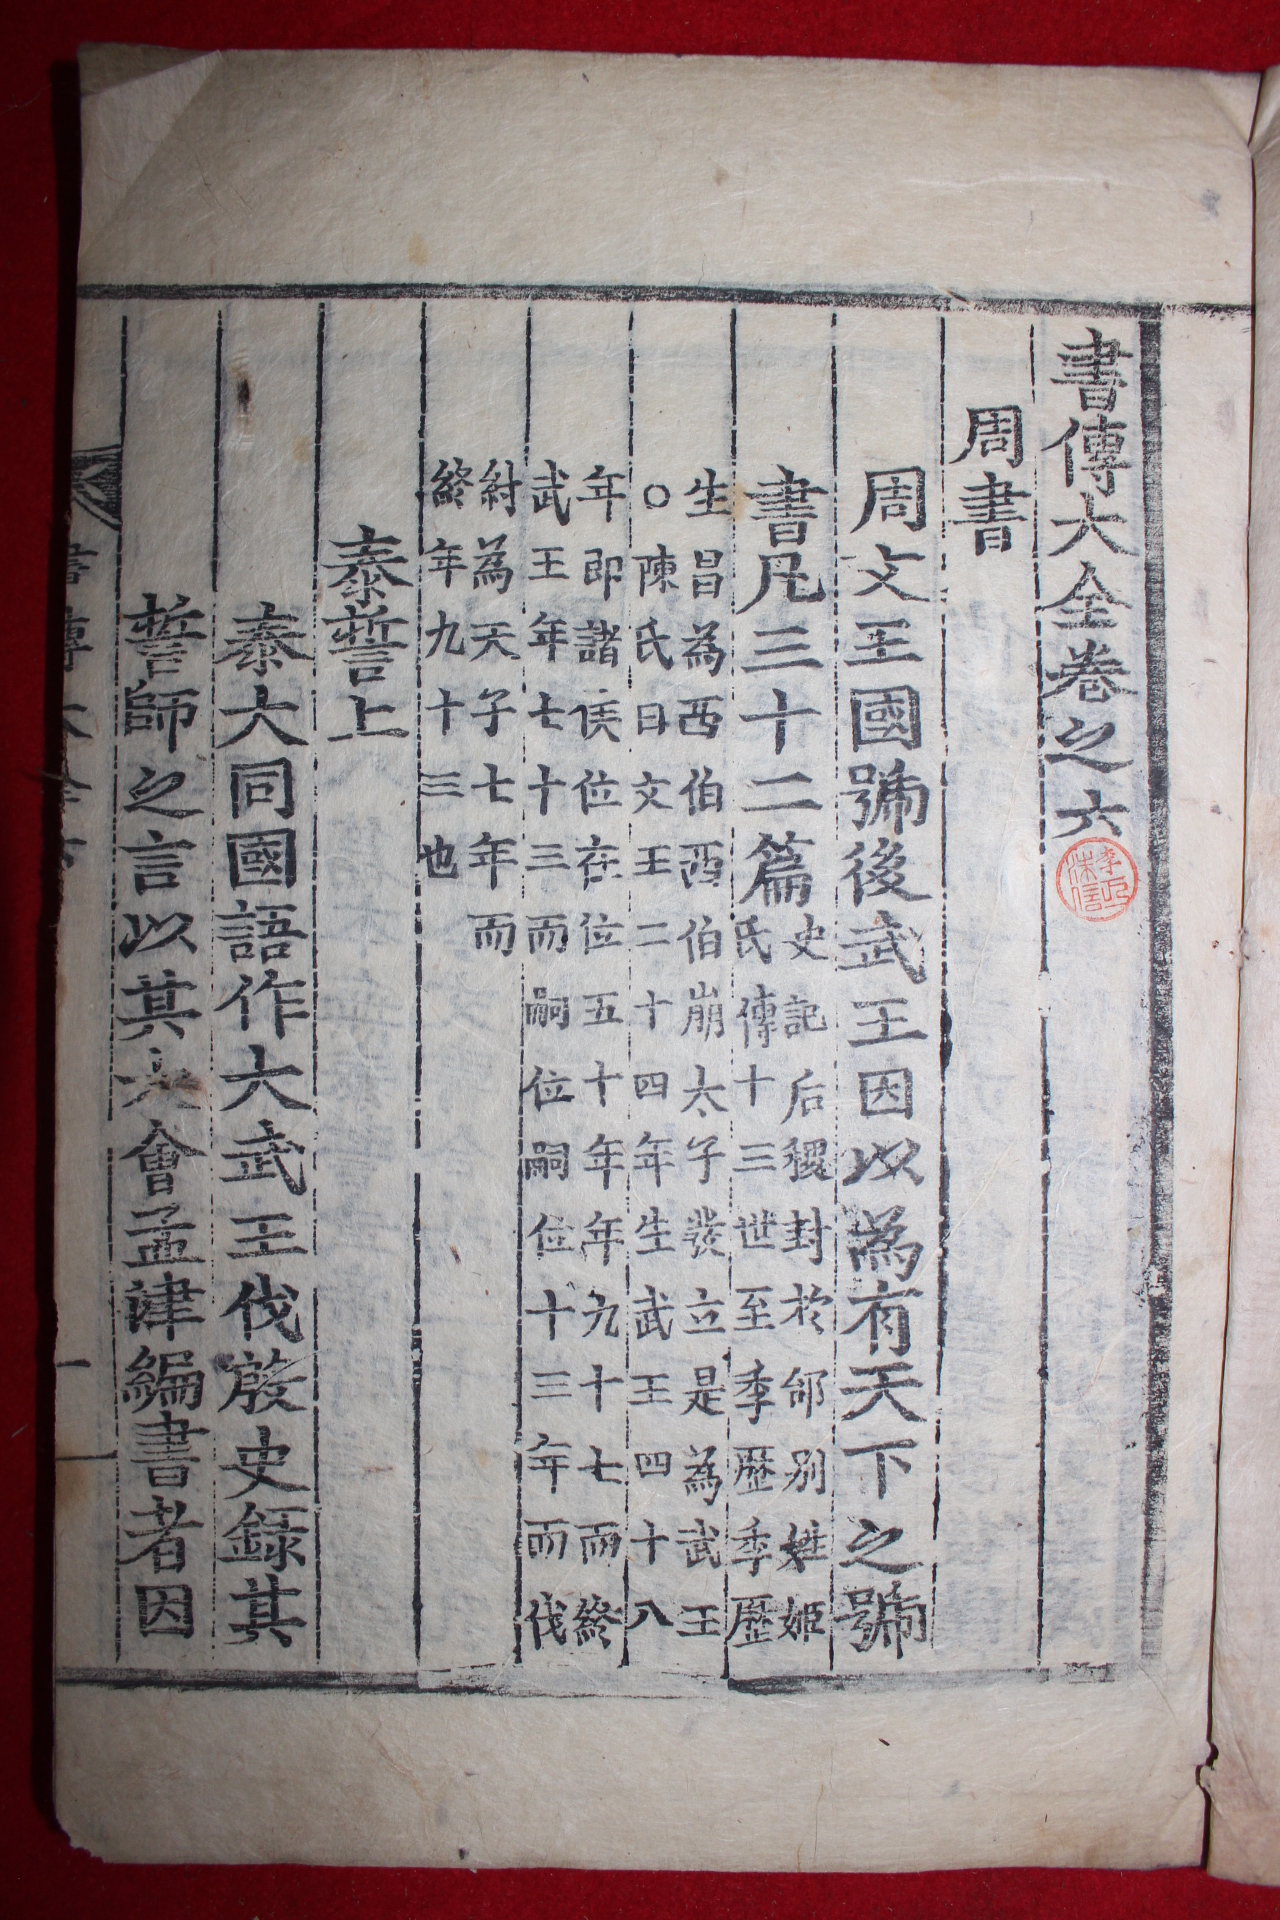 書傳大全卷之六
周書
周文王國號後武王因以為有天下之號
書凡三十二篇
史記后稷封於邰別姓姬
氏傳十三世至季歷季歷
生昌為西伯西伯崩太子發立是為武王
○陳氏曰文王二十四年生武王四十八
年即諸侯位在位五十年年九十七而終
武王年七十三而嗣位嗣位十三年而伐
紂為天子七年而
終年九十三也
泰誓上
泰大同國語作大武王伐殷史錄其
誓師之言以其大會孟津編書者因
書傳大全六
一